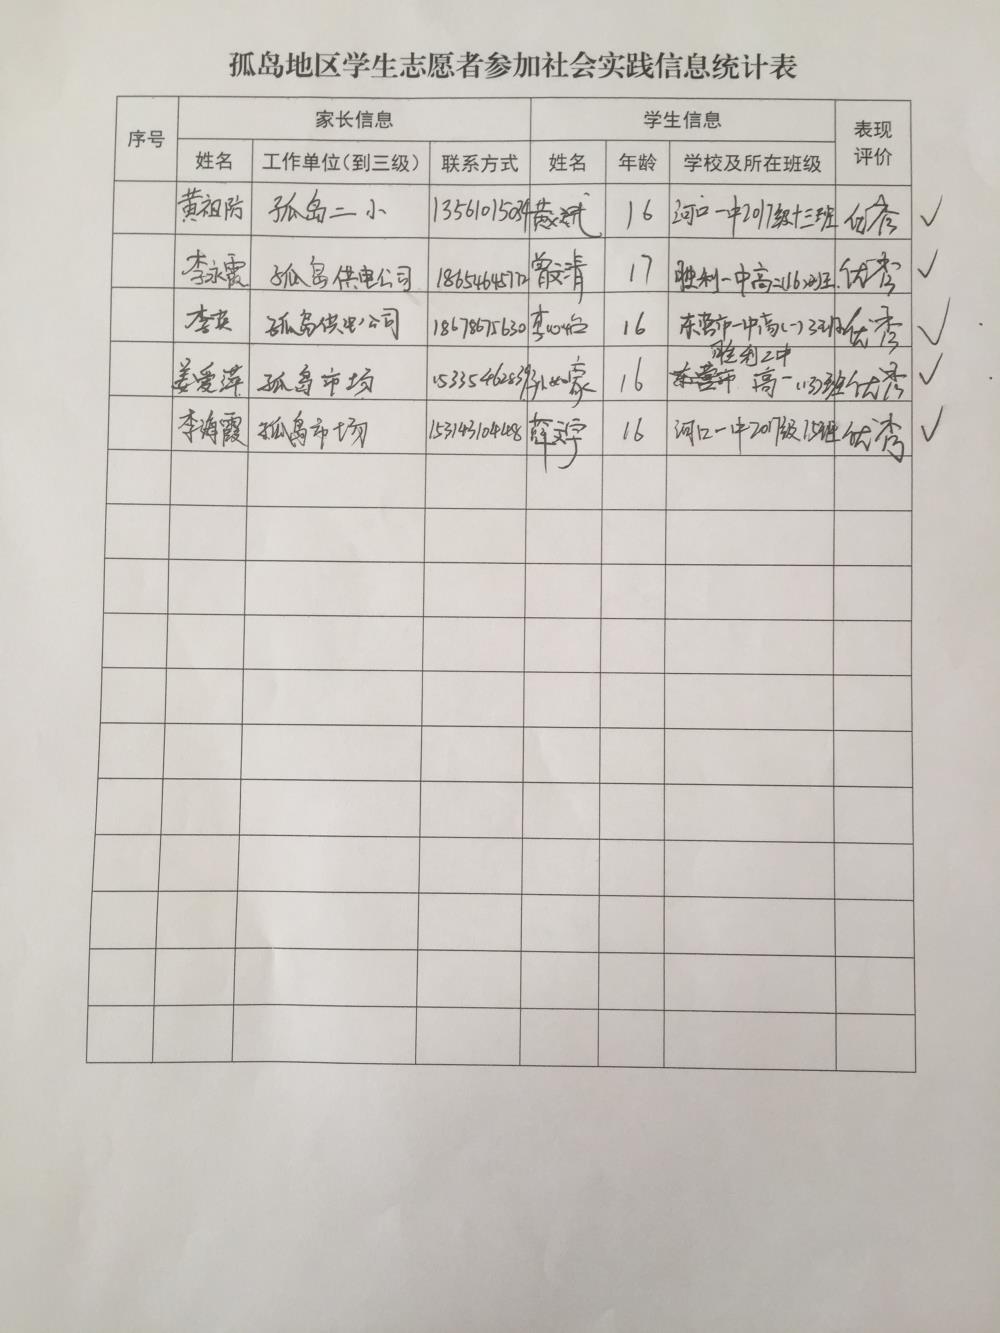 孤岛地区学生志愿者参加社会实践信息统计表
序号 家长信息 学生信息 表现评价
姓名 工作单位(到三级) 联系方式 姓名 年龄 学校及所在班级
黄祖防 孤岛二小 13561015034 黄 16 河口一中2017级十三班 优秀 ✓
李永霞 孤岛供电公司 18654645772 曾文清 17 胜利一中高二(16)班 优秀 ✓
李英 孤岛供电公司 18678675630 李 16 东营市一中高(一)3班 优秀 ✓
胜利二中
姜爱萍 孤岛市场 15335462839 16 高一(13)班 优秀 ✓
李海霞 孤岛市场 15314310448 薛文宇 16 河口一中2017级15班 优秀 ✓